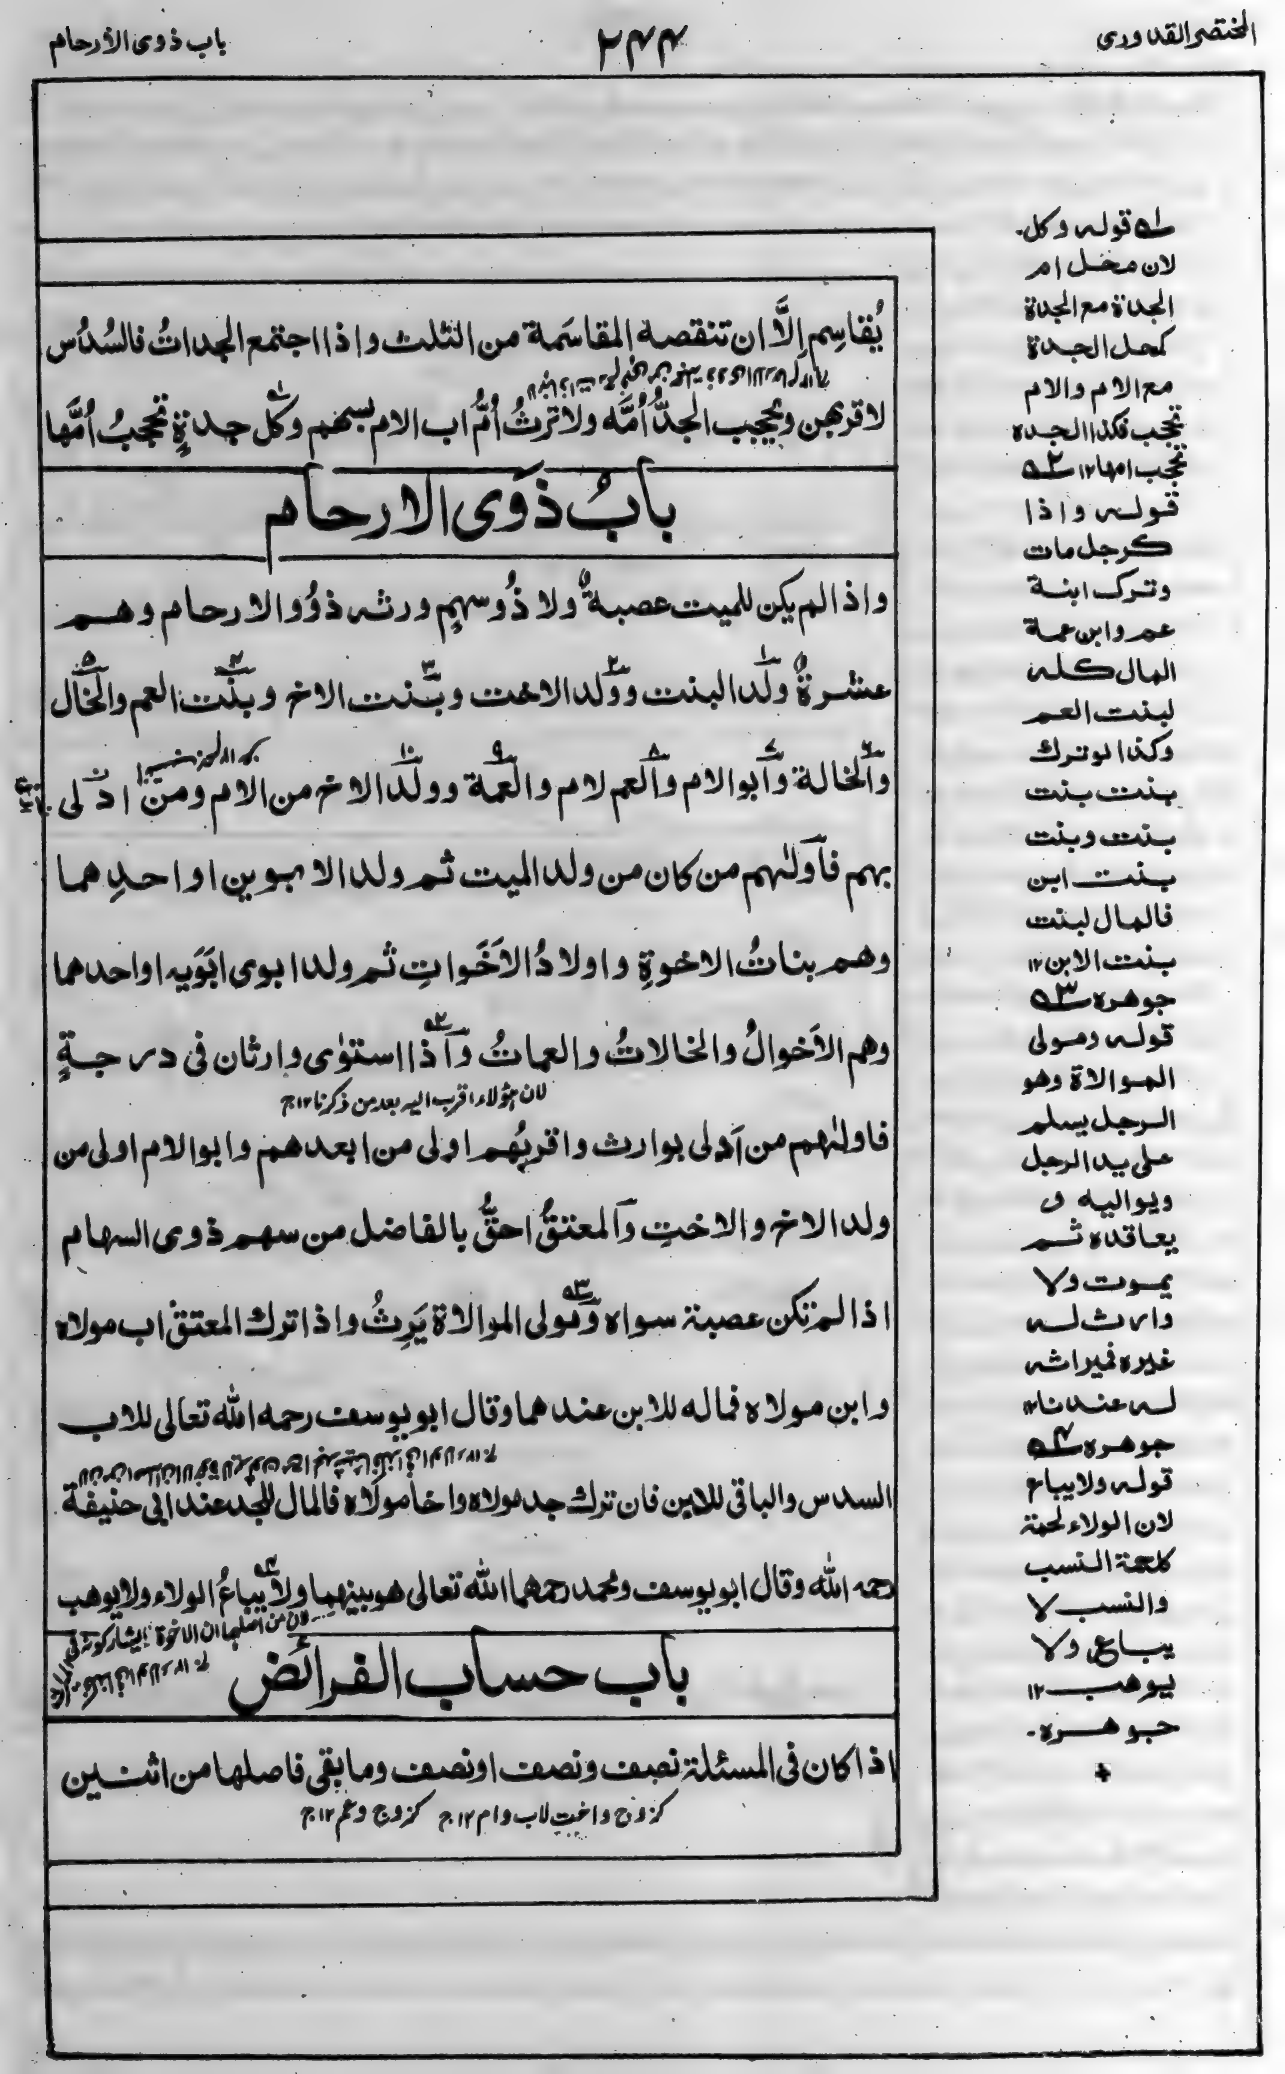 المختصر القدوري
٢٤٤
باب ذوى الأرحام
يُقاسِم اِلَّا ان تنقصه المقاسَمة من الثلث واذا اجتمع الجداتُ فالسُدُس
لاقربهن ويحجب الجدُّ اُمَّه ولا ترثُ اُمُّ اب الام بسهم وكل جدةٍ تحجبُ اُمَّها
بابُ ذوى الارحام
واذا لم يكن للميت عصبةٌ ولا ذُو سهمٍ ورثه ذوُو الارحام وهم
عشرةٌ ولد البنت وولد الاخت وبنت الاخ وبنت العم والخال
والخالة وابو الام والعم لام والعمة وولد الاخ من الام ومن ادلى
بهم فاَولٰهم من كان من ولد الميت ثم ولد الابوين او احدِهما
وهم بناتُ الاخوةِ واولادُ الاَخَواتِ ثم ولد ابوى ابَوَيه او احدهما
وهم الاَخوالُ والخالاتُ والعماتُ واذا استوٰى وارثان فى درجةٍ
لان هؤلاء اقرب اليه بعد من ذكرنا ١٢ ج
فاولٰهم من اَدلى بوارث واقربُهم اولى من ابعدهم وابو الام اولى من
ولد الاخ والاختِ والمعتقُ احقُّ بالفاضل من سهم ذوى السهام
اذا لم تكن عصبة سواه ومولى الموالاة يَرِثُ واذا ترك المعتَق اب مولاه
وابن مولاه فماله للابن عندهما وقال ابو يوسف رحمه الله تعالى للاب
السدس والباقى للابن فان ترك جد مولاه واخا مولاه فالمال للجد عند ابى حنيفة
رحمه الله وقال ابو يوسف ومحمد رحمهما الله تعالى هو بينهما ولا يباعُ الولاء ولا يوهب
باب حساب الفرائض
اذا كان فى المسئلة نصف ونصف او نصف وما بقى فاصلها من اثنين
كزوج واخت لاب وام ١٢ ج كزوج وعم ١٢ ج
ـ١ـه قوله وكل۔
لان محل ام
الجدة مع الجدة
كمحل الجدة
مع الام والام
تحجب فكذا الجده
تحجب امها ١٢ ـ٢ـه
قوله واذا
كرجل مات
وترك ابنة
عم وابن عمة
المال كله
لبنت العم
وكذا لو ترك
بنت بنت
بنت وبنت
بنت ابن
فالمال لبنت
بنت الابن ١٢
جوهره ـ٣ـه
قوله ومولى
الموالاة وهو
الرجل يسلم
على يد الرجل
ويواليه و
يعاقده ثم
يموت ولا
وارث له
غيره فميراثه
له عندنا ١٢
جوهره ـ٤ـه
قوله ولا يباع
لان الولاء لحمة
كلحمة النسب
والنسب لا
يباع ولا
يوهب ١٢
جوهره۔